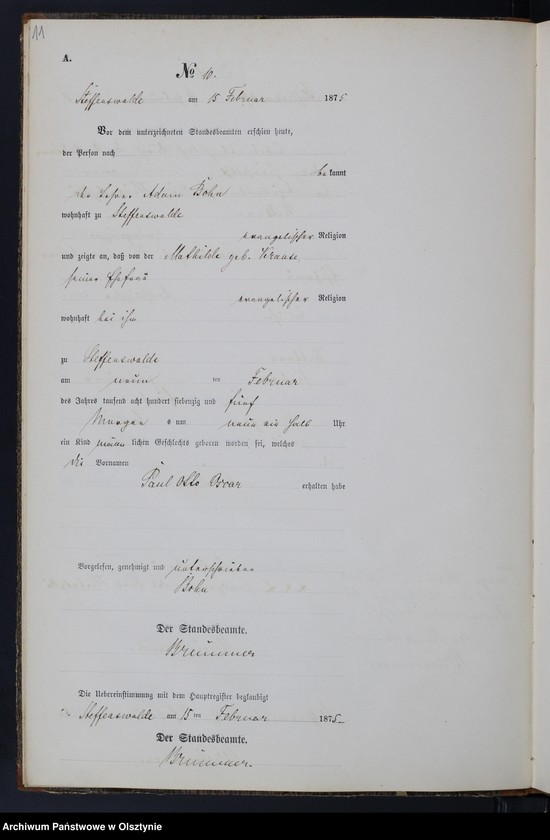 11
A.
No 10.
Steffenswalde am 15 Februar 1875
Vor dem unterzeichneten Standesbeamten erschien heute,
der Person nach
bekannt
der Lehrer Adam Bohn
wohnhaft zu Steffenswalde
evangelischer Religion
und zeigte an, daß von der Mathilde geb. Krause
seiner Ehefrau
evangelischer Religion
wohnhaft bei ihm
zu Steffenswalde
am neun ten Februar
des Jahres tausend acht hundert siebenzig und fünf
Morgen s um neun ein halb Uhr
ein Kind männlichen Geschlechts geboren worden sei, welches
die Vornamen
Paul Otto Oscar erhalten habe
Vorgelesen, genehmigt und unterschrieben
Bohn
Der Standesbeamte.
Brümmer
Die Uebereinstimmung mit dem Hauptregister beglaubigt
Steffenswalde am 15 ten Februar 1875
Der Standesbeamte.
Brümmer.
Archiwum Państwowe w Olsztynie